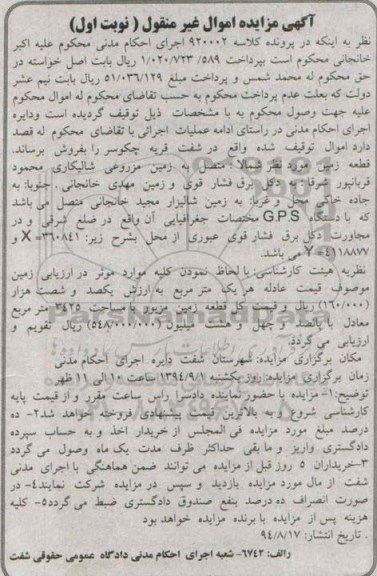 آگهی مزایده اموال غیر منقول ( نوبت اول)
نظر به اینکه در پرونده کلاسه ۹۲۰۰۰۲ اجرای احکام مدنی محکوم علیه اکبر
خانجانی محکوم است بپرداخت ۱/۰۲۰/۷۲۳/۵۸۹ ریال بابت اصل خواسته در
حق محکوم له محمد شمس و پرداخت مبلغ ۵۱/۰۳۶/۱۲۹ ریال بابت نیم عشر
دولت که بعلت عدم پرداخت محکوم به حسب تقاضای محکوم له اموال محکوم
علیه جهت وصول محکوم به با مشخصات ذیل توقیف گردیده است ودایره
اجرای احکام مدنی در راستای ادامه عملیات اجرائی با تقاضای محکوم له قصد
دارد اموال توقیف شده واقع در شفت قریه چکوسر را بفروش برساند.
قطعه زمین مورد نظر شمالا : متصل به زمین مزروعی شالیکاری محمود
قربانپور شرقا: به دکل برق فشار قوی و زمین مهدی خانجانی . جنوبا: به
جاده خاکی محل و غربا: به زمین شالیزار مجید خانجانی متصل می باشد
که با دستگاه G.P.S مختصات جغرافیایی آن واقع در ضلع شرقی و در
مجاورت دکل برق فشار قوی عبوری از محل بشرح زیر: X=۳۶۰۸۴۱ و
Y=۴۱۱۸۸۷۷ می باشد.
نظریه هیئت کارشناسی: با لحاظ نمودن کلیه موارد موثر در ارزیابی زمین
موصوف قیمت عادله هر یک متر مربع به ارزش یکصد و شصت هزار
(۱۶۰/۰۰۰) ریال و قیمت کل قطعه زمین مزبور با مساحت ۳۴۲۵ متر مربع
معادل با پانصد و چهل و هشت میلیون (۵۴۸/۰۰۰/۰۰۰) ریال تقویم و
ارزیابی می گردد.
مکان برگزاری مزایده: شهرستان شفت دایره اجرای احکام مدنی
زمان برگزاری مزایده: روز یکشنبه ۱۳۹۴/۹/۱ ساعت ۱۰ الی ۱۱ ظهر
توضیح: ۱- مزایده با حضور نماینده دادسرا راس ساعت مقرر و از قیمت پایه
کارشناسی شروع و به بالاترین قیمت پیشنهادی فروخته خواهد شد۲- ده
درصد مبلغ مورد مزایده فی المجلس از خریدار اخذ و به حساب سپرده
دادگستری واریز و ما بقی حداکثر ظرف مدت یک ماه وصول می گردد
۳-خریداران ۵ روز قبل از مزایده می توانند ضمن هماهنگی با اجرای مدنی
شفت از مال مورد مزایده بازدید و سپس در مزایده شرکت نمایند۴- در
صورت انصراف ده درصد بنفع صندوق دادگستری ضبط می گردد۵- کلیه
هزینه پس از مزایده با برنده مزایده خواهد بود
. تاریخ انتشار: ۹۴/۸/۱۷
رالف: ۶۷۴۲- شعبه اجرای احکام مدنی دادگاه عمومی حقوقی شفت
ParsNamadData